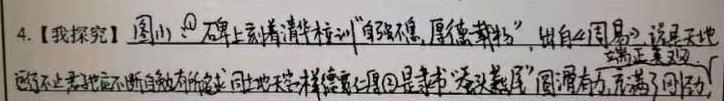 4.【我探究】图(1)①石碑上刻着清华校训"自强不息,厚德载物",出自《周易》,说是天地
端正美观。
运行不止君子也应不断自勉有所追求同土地天字一样德宽仁厚②是隶书"蚕头燕尾"圆润有力,充满了同活力,